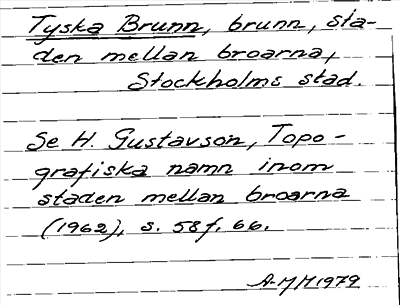 Tyska Brunn, brunn, sta-
den mellan broarna,
Stockholms stad.
Se H. Gustavson, Topo-
grafiska namn inom
staden mellan broarna
(1962), s. 58f, 66.
A-MM1979